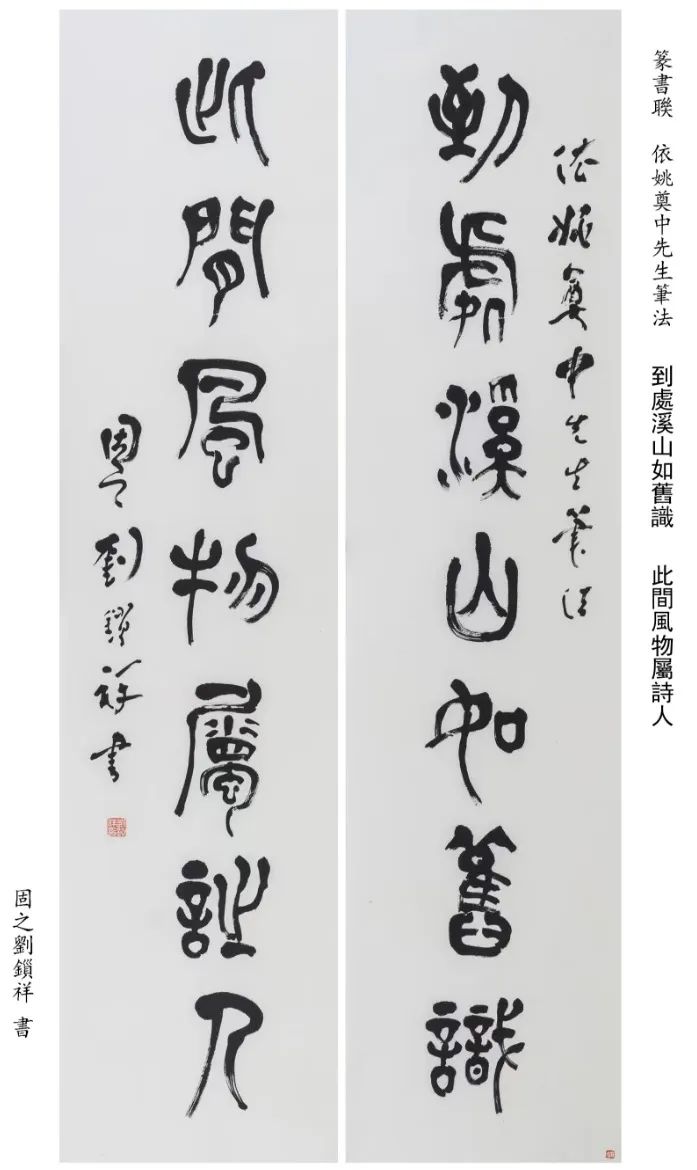 篆書聯 依姚奠中先生筆法 到處溪山如舊識 此間風物屬詩人
依姚奠中先生筆法
到處溪山如舊識
此間風物屬詩人
固之劉鎖祥書
固之劉鎖祥 書